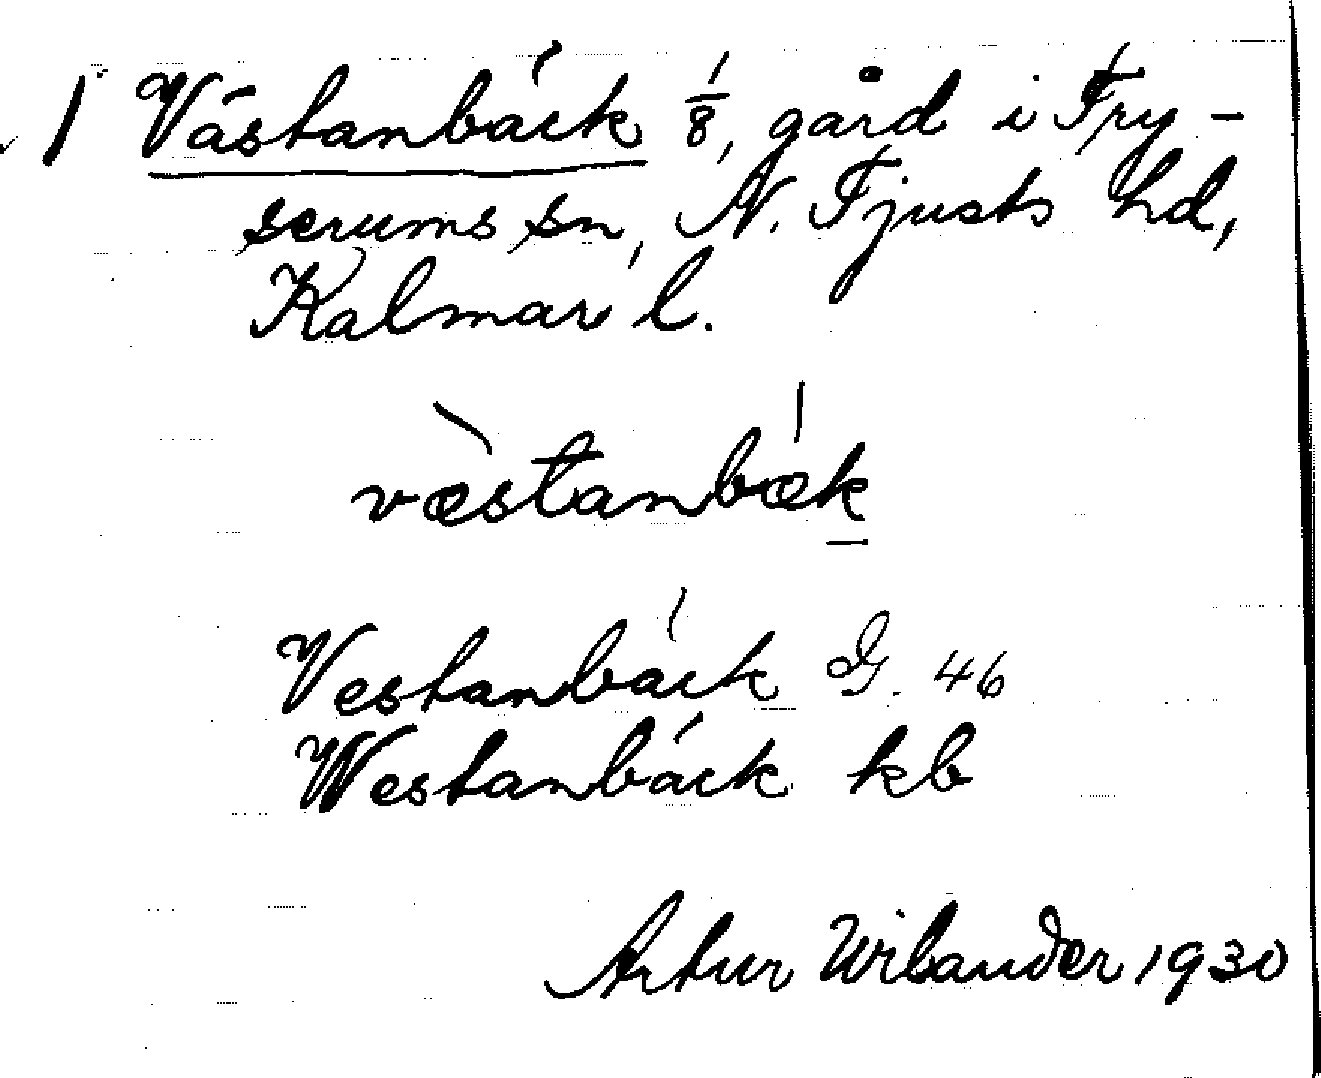 1 Västanbäck 1/8, gård i Try-
serums sn, N. Tjusts hd,
Kalmar l.
væ̀stanbæk
Vestanbäck G. 46
Westanbäck kb
Artur Wilander 1930